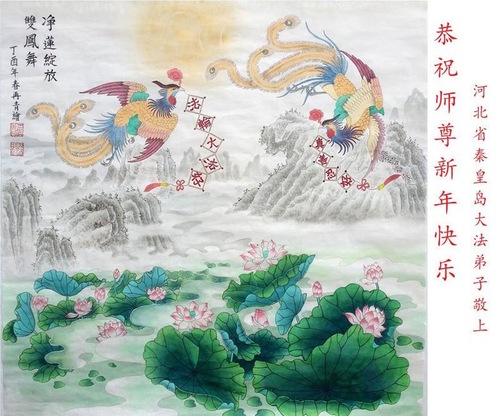 净莲綻放
雙鳳舞
丁酉年春冉青繪
法輪大法好
真善忍好
恭祝师尊新年快乐
河北省秦皇岛大法弟子敬上